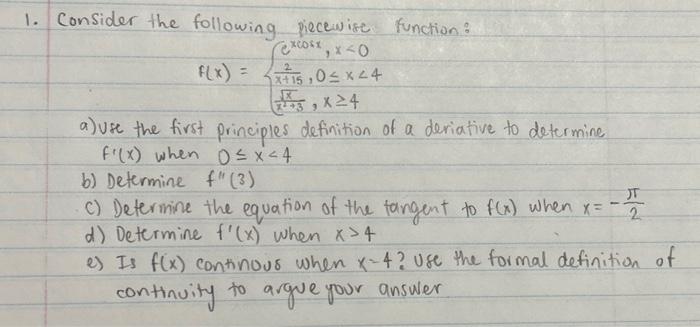 1. Consider the following piecewise function:
f(x) = { e^xcosx, x<0
2/x+15, 0≤x<4
√x/x²+3, x≥4
a) Use the first principles definition of a deriative to determine
f'(x) when 0≤x<4
b) Determine f"(3)
c) Determine the equation of the tangent to f(x) when x= -π/2
d) Determine f'(x) when x>4
e) Is f(x) continous when x=4? Use the formal definition of
continuity to argue your answer